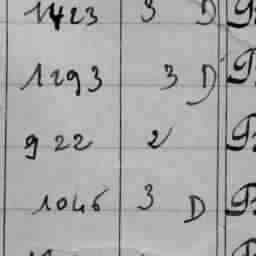 1423 3 D
1293 3 D
922 2
1046 3 D